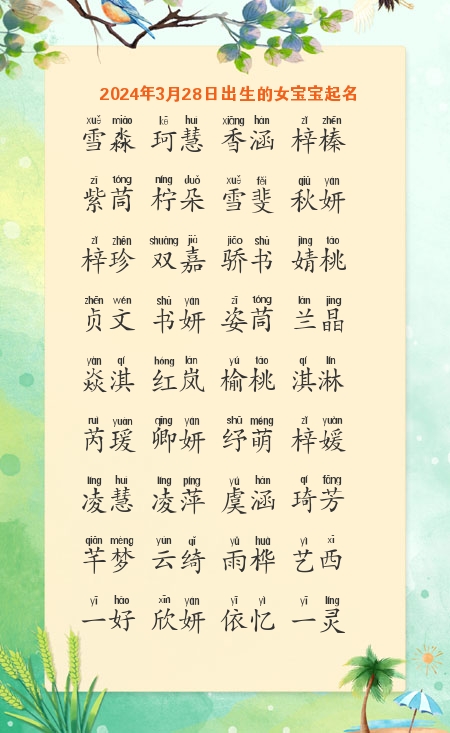 2024年3月28日出生的女宝宝起名
xuě miǎo kē huì xiāng hán zǐ zhēn
雪淼 珂慧 香涵 梓榛
zǐ tóng níng duǒ xuě fěi qiū yán
紫茼 柠朵 雪斐 秋妍
zǐ zhēn shuāng jiā jiāo shū jìng táo
梓珍 双嘉 骄书 婧桃
zhēn wén shū yán zī tóng lán jīng
贞文 书妍 姿茼 兰晶
yàn qí hóng lán yú táo qí lín
焱淇 红岚 榆桃 淇淋
ruì yuàn qīng yán shū méng zǐ yuàn
芮瑗 卿妍 纾萌 梓媛
líng huì líng píng yú hán qí fāng
凌慧 凌萍 虞涵 琦芳
qiān mèng yún qǐ yǔ huà yì xī
芊梦 云绮 雨桦 艺西
yī hǎo xīn yán yī yì yī líng
一好 欣妍 依忆 一灵